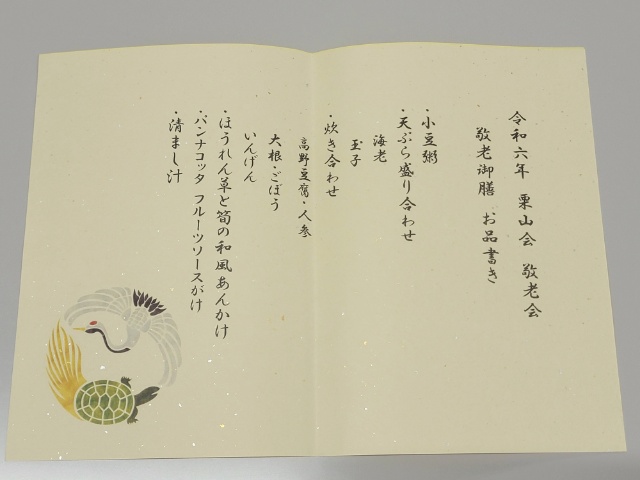 令和六年 栗山会 敬老会
敬老御膳 お品書き
・小豆粥
・天ぷら盛り合わせ
海老
玉子
・炊き合わせ
高野豆腐・人参
大根・ごぼう
いんげん
・ほうれん草と筍の和風あんかけ
・パンナコッタ フルーツソースがけ
・清まし汁